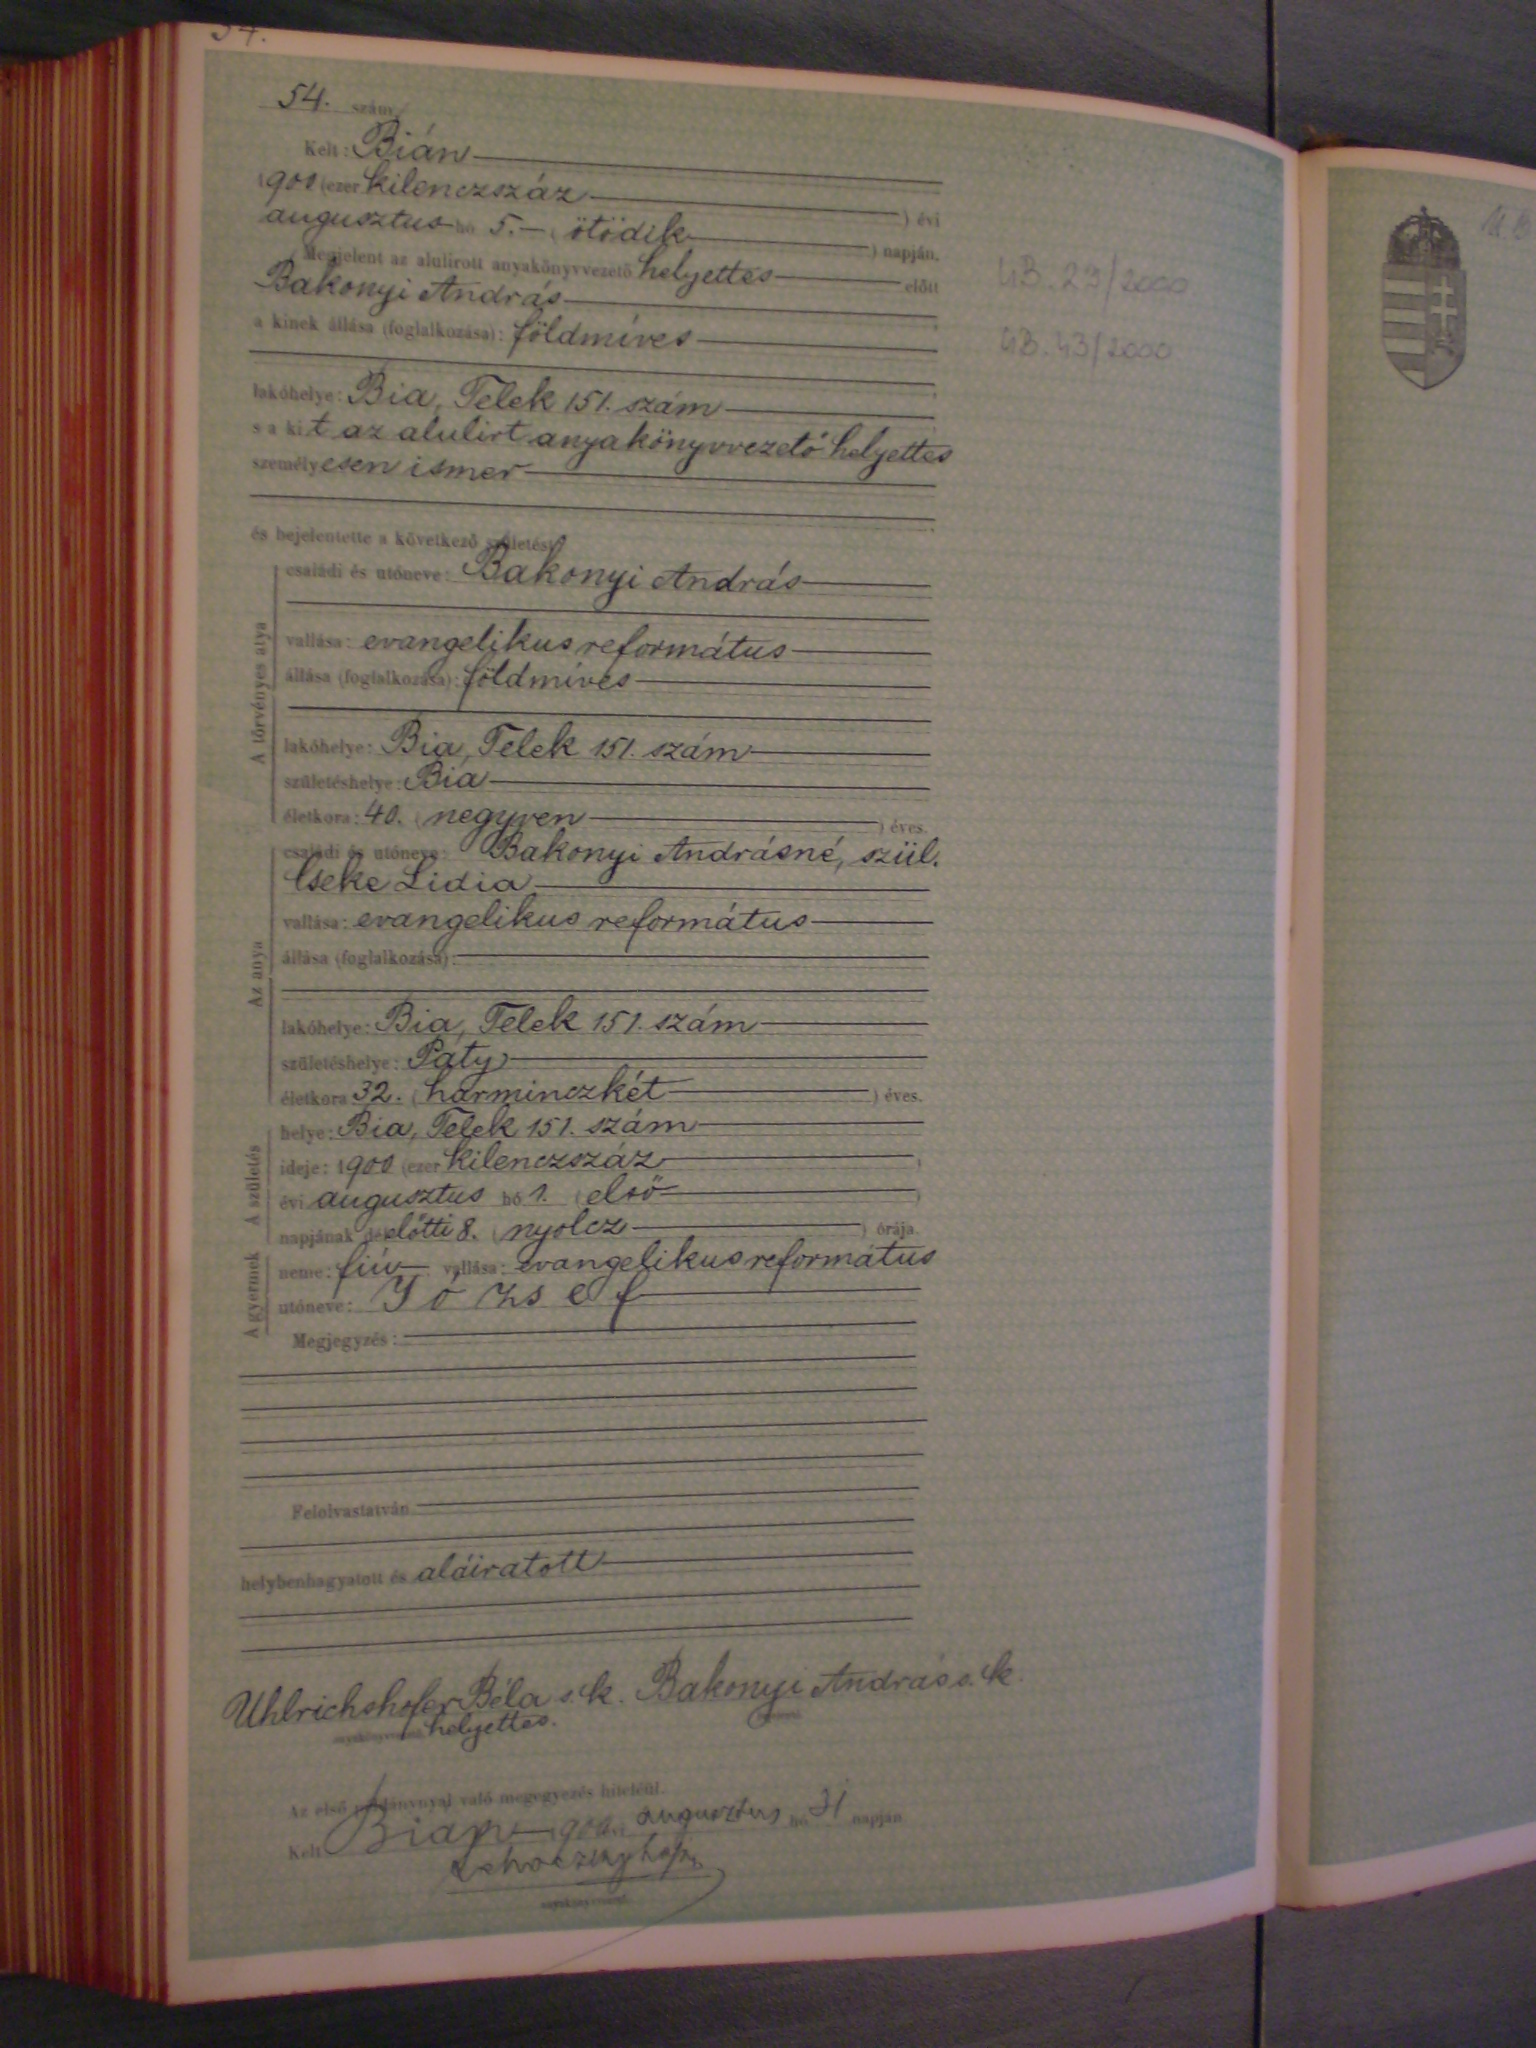 54.
54. szám
Kelt: Bián
1900 (ezer kilenczszáz ) évi
augusztus hó 5. (ötödik ) napján.
Megjelent az alulirott anyakönyvvezető helyettes előtt
Bakonyi András
a kinek állása (foglalkozása): földmíves
lakóhelye: Bia, Telek 151. szám
s a kit az alulirt anyakönyvvezető helyettes
személyesen ismer
és bejelentette a következő születést:
A törvényes atya
családi és utóneve: Bakonyi András
vallása: evangelikus református
állása (foglalkozása): földmíves
lakóhelye: Bia, Telek 151. szám
születéshelye: Bia
életkora: 40. (negyven ) éves.
Az anya
családi és utóneve: Bakonyi Andrásné, szül.
Cseke Lidia
vallása: evangelikus református
állása (foglalkozása):
lakóhelye: Bia, Telek 151. szám
születéshelye: Páty
életkora 32. (harminczkét ) éves.
A születés
helye: Bia, Telek 151. szám
ideje: 1900 (ezer kilenczszáz )
évi augusztus hó 1. (első )
napjának délelőtti 8. (nyolcz ) órája.
A gyermek
neme: fiú vallása: evangelikus református
utóneve: József
Megjegyzés:
Felolvastatván
helybenhagyatott és aláiratott
Uhlrichshofer Béla s. k. Bakonyi András s. k.
anyakönyvvezető helyettes. bejelentő
Az első példánynyal való megegyezés hiteléül.
Kelt Bián 1900 évi augusztus hó 31 napján
anyakönyvvezető
UB. 23/2000
UB. 43/2000